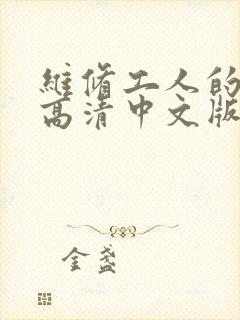 維脩工人的
高清中文版
金盞